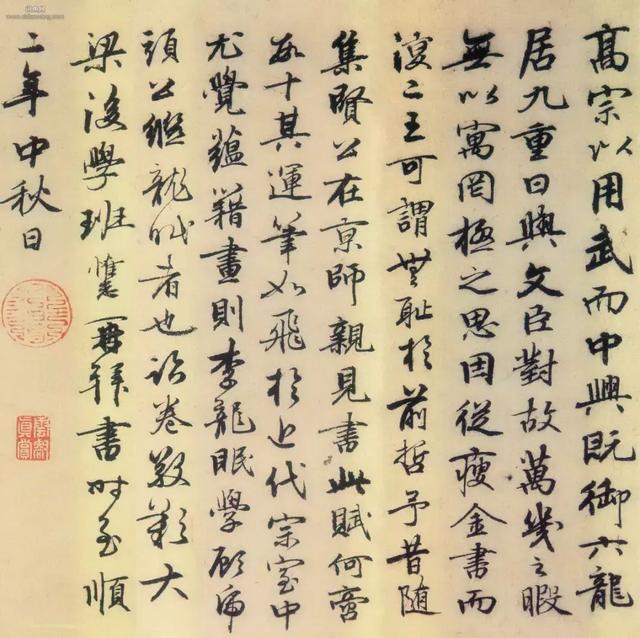 高宗以用武而中興既御六龍
居九重日與文臣對故萬幾之暇
無以寓罔極之思因從瘦金書而
復二王可謂無耻於前哲予昔隨
集賢公在京師親見書此賦何啻
數十其運筆如飛於近代宗室中
尤覺蘊籍畫則李龍眠學顧虎
頭公繼龍眠者也卷歎大
梁後學班惟志再拜書時至順
二年中秋日
词典网
www.cidianwang.com